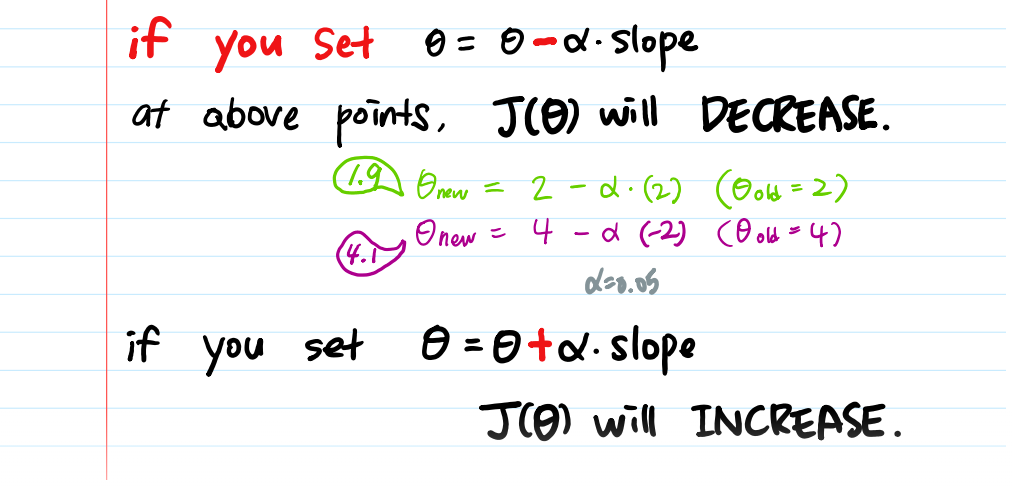 if you set θ = θ - α · slope
at above points, J(θ) will DECREASE.
1.9 θnew = 2 - α · (2) (θold = 2)
4.1 θnew = 4 - α (-2) (θold = 4)
α=0.05
if you set θ = θ + α · slope
J(θ) will INCREASE.